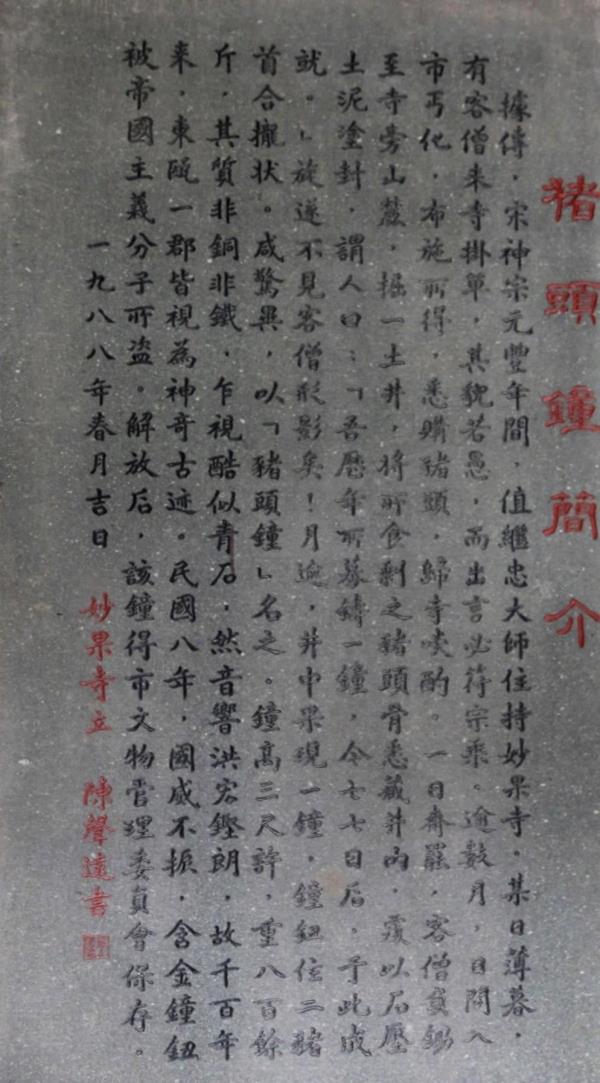 猪頭鐘簡介
據傳，宋神宗元豐年間，值繼忠大師住持妙果寺，某日薄暮，
有客僧来寺掛單，其貌若愚，而出言必符宗乘。逾數月，日間入
市丐化，布施所得，悉購猪頭，歸寺啖酌。一日齋罷，客僧負鋤
至寺旁山麓，掘一土井，將所食剩之豬頭骨悉藏井内，覆以石壓
土泥塗封，謂人曰：「吾歷年所募鑄一鐘，今七七日后，予此成
就。」旋遂不見客僧形影矣！月逾，井中果現一鐘，鐘鈕位二豬
首合攏状。咸驚異，以「豬頭鐘」名之。鐘高三尺許，重八百餘
斤，其質非銅非鐵，乍視酷似青石，然音響洪宏鏗朗，故千百年
来，東甌一郡皆視為神奇古迹。民國八年，國威不振，含金鐘鈕
被帝國主義分子所盗。解放后，該鐘得市文物管理委員會保存。
一九八八年春月吉日 妙果寺立 陳聲遠書